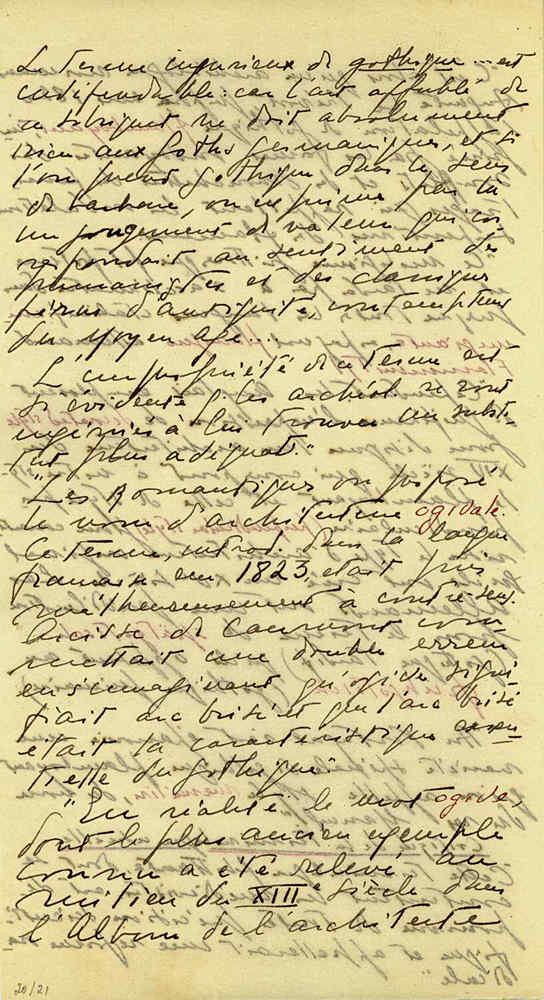 Le terme injurieux de gothique... est
indéfendable: car l'art affublé de
ce sobriquet ne doit absolument
rien aux Goths germaniques, et si
l'on prend gothique dans le sens
de barbare, on exprime par là
un jugement de valeur qui cor
respondait au sentiment des
humanistes et des classiques
férus d'antiquité, contempteurs
du Moyen age...
L'impropriété de ce terme est
si évidente q. les archéol. se sont
ingéniés à lui trouver un substi-
tut plus adéquat."
"Les Romantiques on proposé
le nom d'architecture ogivale.
Ce terme, introd. dans la langue
française en 1823, était pris
malheureusement à contre-sens.
Arcisse de Caumont com
mettait une double erreur
en s'imaginant qu'ogive signi
fiait arc brisé et que l'arc brisé
était la caractéristique essen
tielle du gothique."
"En réalité le mot ogive,
dont le plus ancien exemple
connu a été relevé au
milieu du XIIIe siècle dans
l'Album de l'architecte
20/21